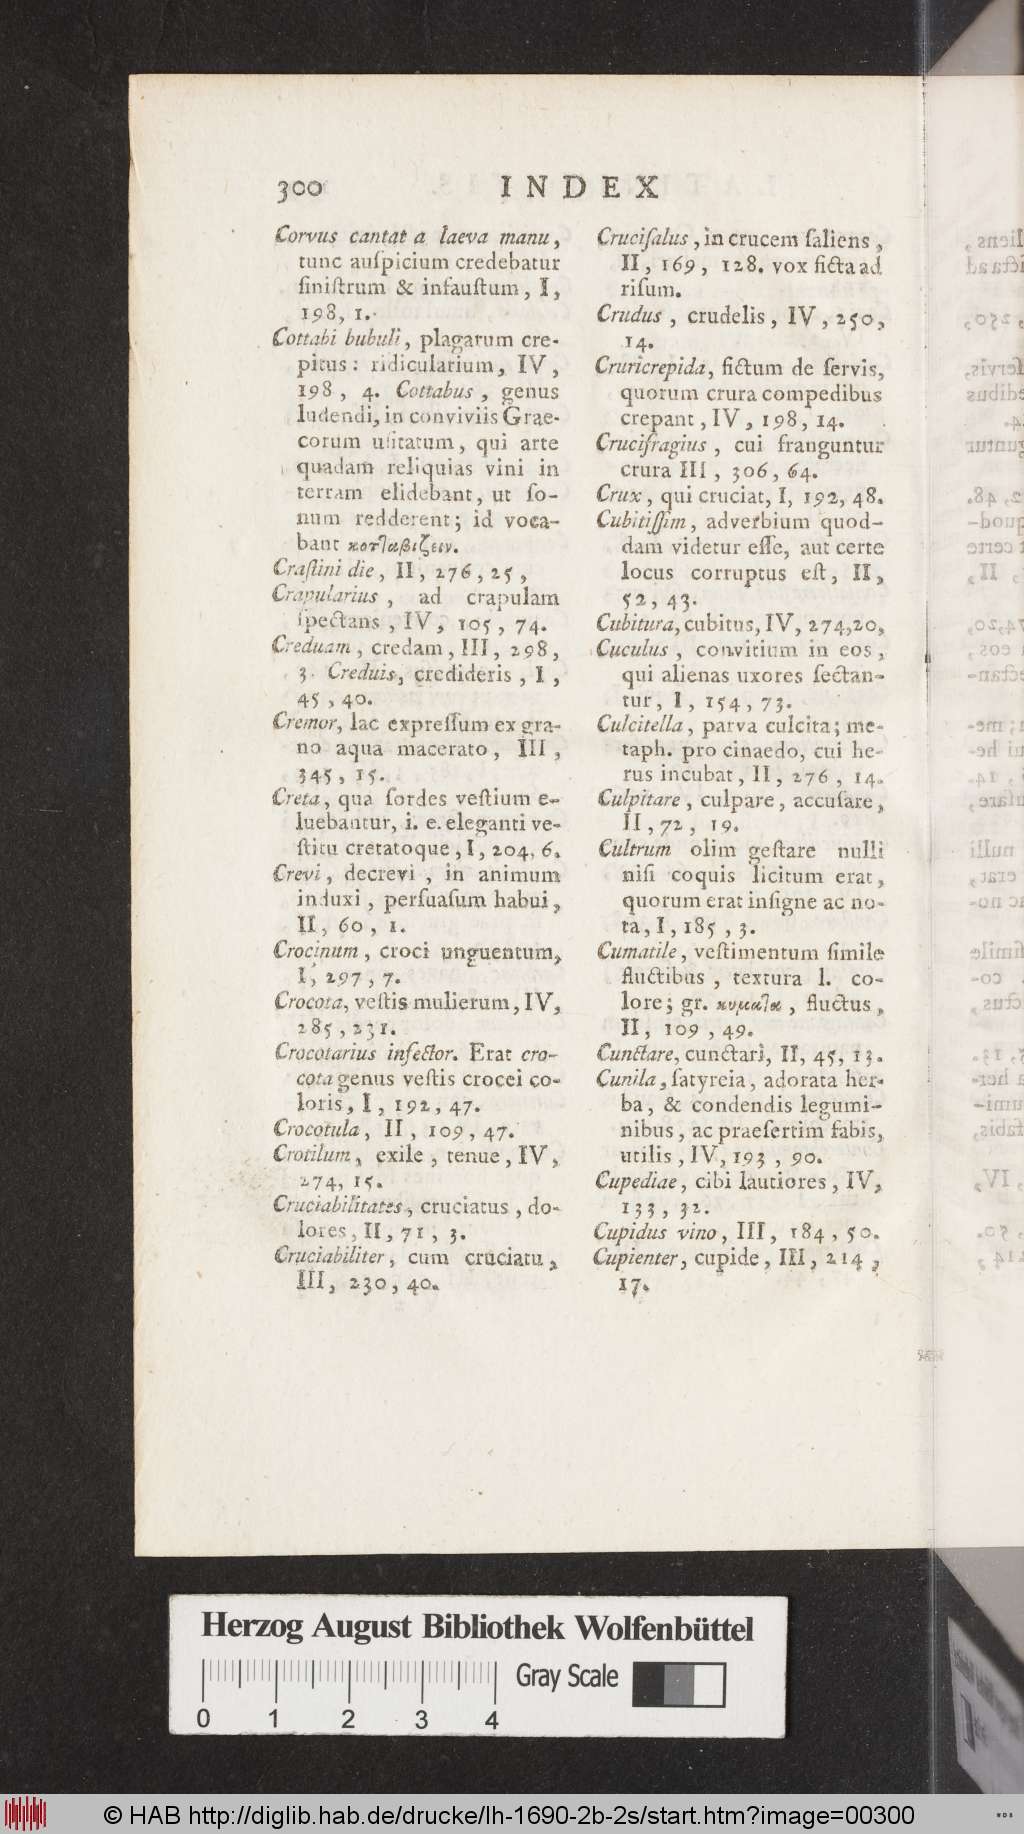 300 INDEX
Corvus cantat a laeva manu,
tunc auſpicium credebatur
ſiniſtrum & infauſtum, I,
198, 1.
Cottabi bubuli, plagarum cre-
pitus: ridicularium, IV,
198, 4. Cottabus, genus
ludendi, in conviviis Grae-
corum uſitatum, qui arte
quadam reliquias vini in
terram elidebant, ut ſo-
num redderent; id voca-
bant κοτlαβιζειν.
Craſtini die, II, 276, 25,
Crapularius, ad crapulam
ſpectans, IV, 105, 74.
Creduam, credam, III, 298,
3. Creduis, credideris, I,
45, 40.
Cremor, lac expreſſum ex gra-
no aqua macerato, III,
345, 15.
Creta, qua ſordes veſtium e-
luebantur, i. e. eleganti ve-
ſtitu cretatoque, I, 204, 6.
Crevi, decrevi, in animum
induxi, perſuaſum habui,
II, 60, 1.
Crocinum, croci unguentum,
I, 297, 7.
Crocota, veſtis mulierum, IV,
285, 231.
Crocotarius infector. Erat cro-
cota genus veſtis crocei co-
loris, I, 192, 47.
Crocotula, II, 109, 47.
Crotilum, exile, tenue, IV,
274, 15.
Cruciabilitates, cruciatus, do-
lores, II, 71, 3.
Cruciabiliter, cum cruciatu,
III, 230, 40.
Cruciſalus, in crucem ſaliens,
II, 169, 128. vox ficta ad
riſum.
Crudus, crudelis, IV, 250,
14.
Cruricrepida, fictum de ſervis,
quorum crura compedibus
crepant, IV, 198, 14.
Crucifragius, cui franguntur
crura III, 306, 64.
Crux, qui cruciat, I, 192, 48.
Cubitiſſim, adverbium quod-
dam videtur eſſe, aut certe
locus corruptus eſt, II,
52, 43.
Cubitura, cubitus, IV, 274, 20,
Cuculus, convitium in eos,
qui alienas uxores ſectan-
tur, I, 154, 73.
Culcitella, parva culcita; me-
taph. pro cinaedo, cui he-
rus incubat, II, 276, 14.
Culpitare, culpare, accuſare,
II, 72, 19.
Cultrum olim geſtare nulli
niſi coquis licitum erat,
quorum erat inſigne ac no-
ta, I, 185, 3.
Cumatile, veſtimentum ſimile
fluctibus, textura l. co-
lore; gr. κυμαlα, fluctus,
II, 109, 49.
Cunctare, cunctari, II, 45, 13.
Cunila, ſatyreia, adorata her-
ba, & condendis legumi-
nibus, ac praeſertim fabis,
utilis, IV, 193, 90.
Cupediae, cibi lautiores, IV,
133, 32.
Cupidus vino, III, 184, 50.
Cupienter, cupide, III, 214,
17.
Herzog August Bibliothek Wolfenbüttel
Gray Scale
0 1 2 3 4
© HAB http://diglib.hab.de/drucke/lh-1690-2b-2s/start.htm?image=00300